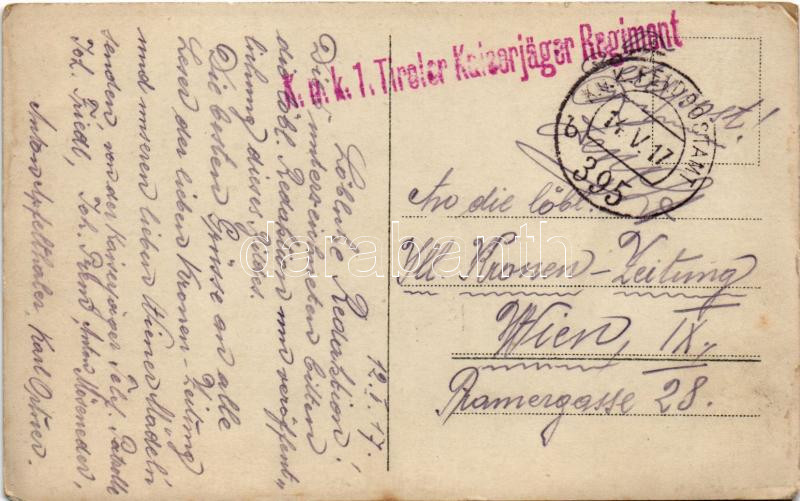 K. u. k. 1. Tiroler Kaiserjäger Regiment
K.u.K. FELDPOSTAMT
14. V. 17
b
395
An die löbl.
Ill. Kronen-Zeitung
Wien, IX.,
Pramergasse 28.
12.5.17.
Löbliche Redaktion!
Die unterzeichneten bitten
die löbl. Redaktion um veröffent-
lichung dieses Bildes.
Die besten Grüsse an alle
Leser der lieben Kronen-Zeitung
und unseren lieben Wiener Madeln
senden, von der Kaiserjäger Tel. Patrolle
Joh. Friedl, Joh. Anton
Anton Apfelthaler, Karl Ortner.
darabanth.com